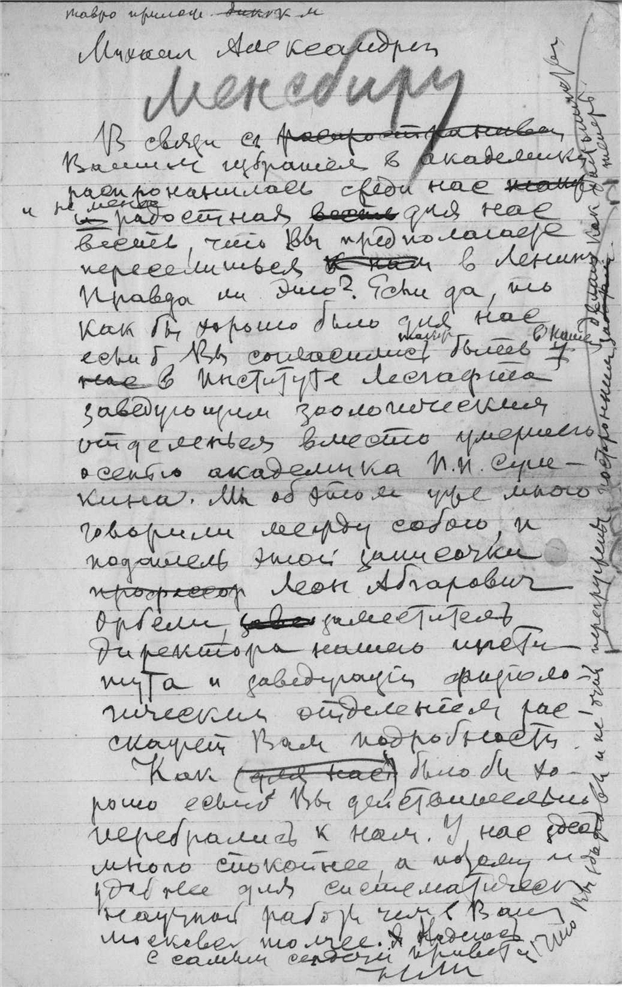 Михаил Александрович
Мензбиру
В связи съ распространивш
Вашим избранием в академики
распространилась среди нас
и не менее радостная весть для нас
весть, что Вы предполагаете
переселиться к нам в Ленинг
Правда ли это? Если да, то
как бы хорошо было для нас
если б Вы согласились быть
нас в Институте Лесгафта
заведующим зоологическим
отделеньем вместо умершего
осенью академика П.П. Суш-
кина. Мы об этом уже много
говорили между собою, и
податель этой записочки
профессор Леон Абгарович
Орбели, заместитель
директора нашего инсти
тута и заведующий физиоло
гическим отделением рас
скажет Вам подробности.
Как (для нас) было бы хо-
рошо еслиб Вы действительно
перебрались к нам. У нас здесь
много спокойнее, а потому и
удобнее для систематическ
научной работы чем в Ваш
московск толчее. Я надеюсь
с самым сердечн привет
что Вы здоровы и не очень перегружены посторонним
делами как
теперь.